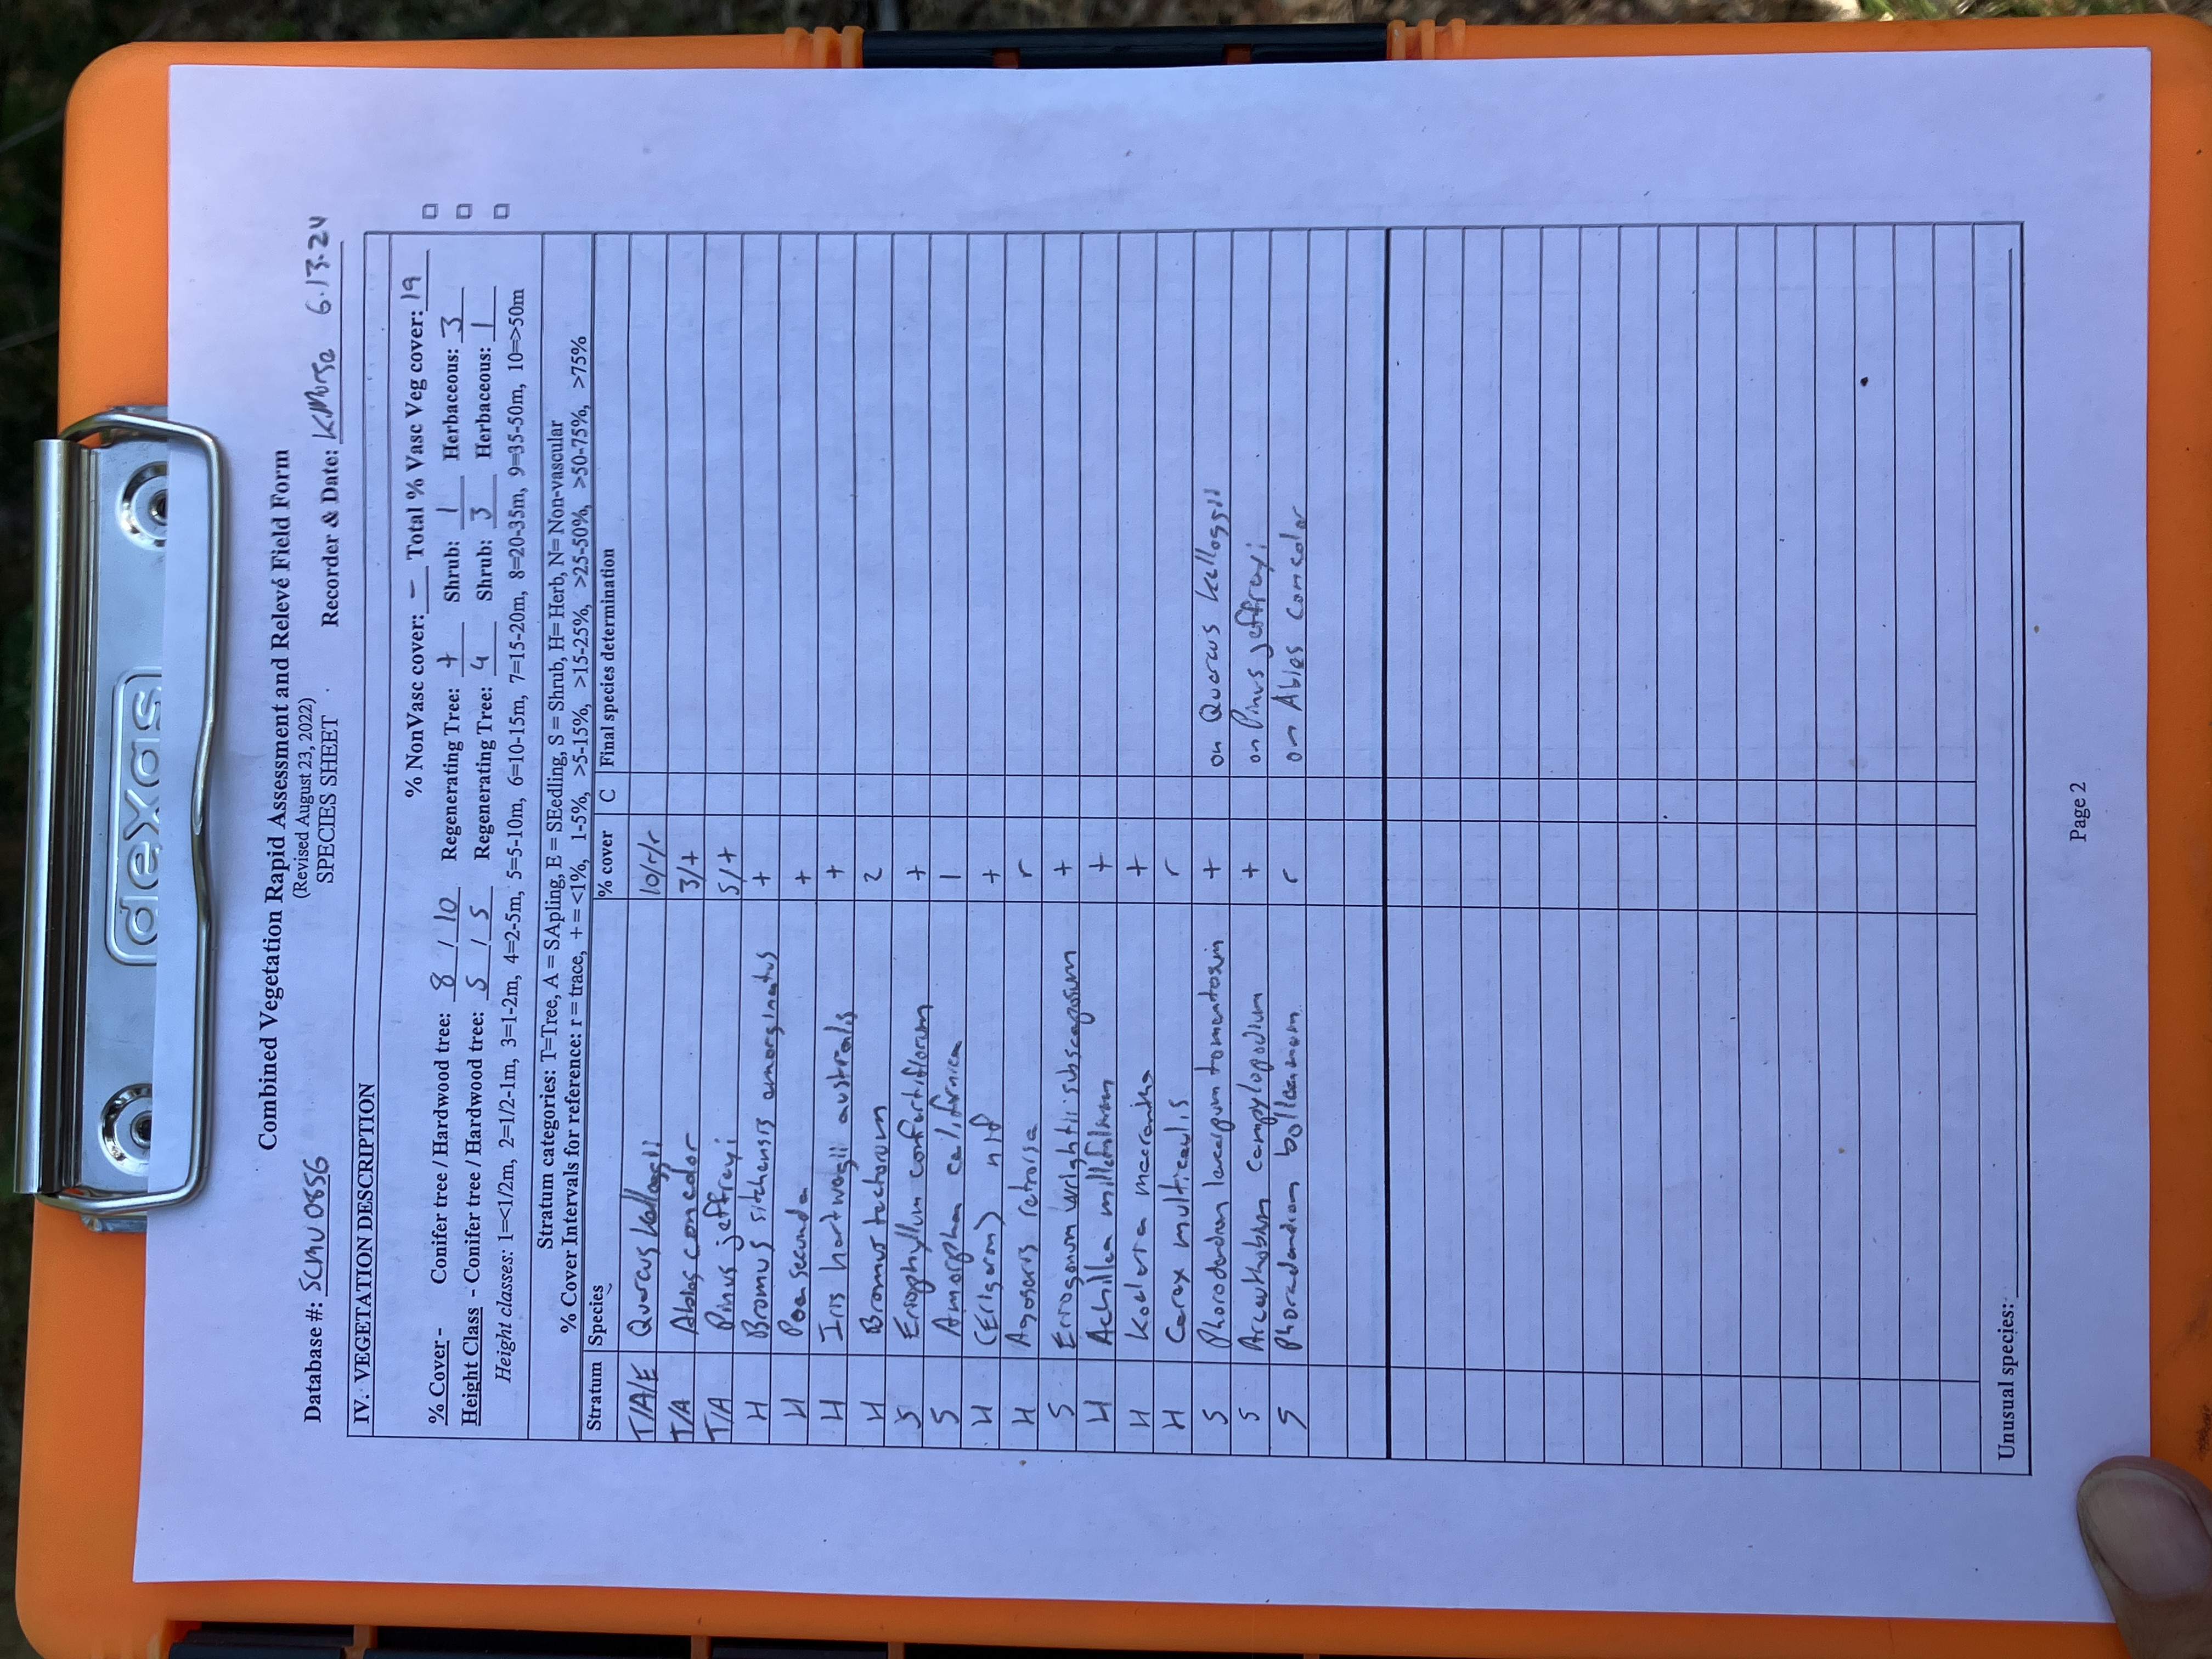 dexas
Combined Vegetation Rapid Assessment and Relevé Field Form
(Revised August 23, 2022)
SPECIES SHEET
Database #: SCMU0856 Recorder & Date: KMorse 6.13.24
IV. VEGETATION DESCRIPTION
% NonVasc cover: — Total % Vasc Veg cover: 19
% Cover - Conifer tree / Hardwood tree: 8 / 10 Regenerating Tree: + Shrub: 1 Herbaceous: 3
Height Class - Conifer tree / Hardwood tree: 5 / 5 Regenerating Tree: 4 Shrub: 3 Herbaceous: 1
Height classes: 1=<1/2m, 2=1/2-1m, 3=1-2m, 4=2-5m, 5=5-10m, 6=10-15m, 7=15-20m, 8=20-35m, 9=35-50m, 10=>50m
Stratum categories: T=Tree, A = SApling, E = SEedling, S = Shrub, H= Herb, N= Non-vascular
% Cover Intervals for reference: r = trace, + = <1%, 1-5%, >5-15%, >15-25%, >25-50%, >50-75%, >75%
Stratum Species % cover C Final species determination
T/A/E Quercus kelloggii 10/r/r
T/A Abies concolor 3/+
T/A Pinus jeffreyi 5/+
H Bromus sitchensis emarginatus +
H Poa secunda +
H Iris hartwegii australis +
H Bromus tectorum 2
S Eriophyllum confertiflorum +
S Amorpha californica 1
H (Erigeron) nid +
H Agoseris retrorsa r
S Eriogonum wrightii subscaposum +
H Achillea millefolium +
H Koeleria macrantha +
H Carex multicaulis r
S Phorodendron leucarpum tomentosum + on Quercus kelloggii
S Arceuthobium campylopodium + on Pinus jeffreyi
S Phoradendron bolleanum r on Abies concolor
Unusual species:
Page 2